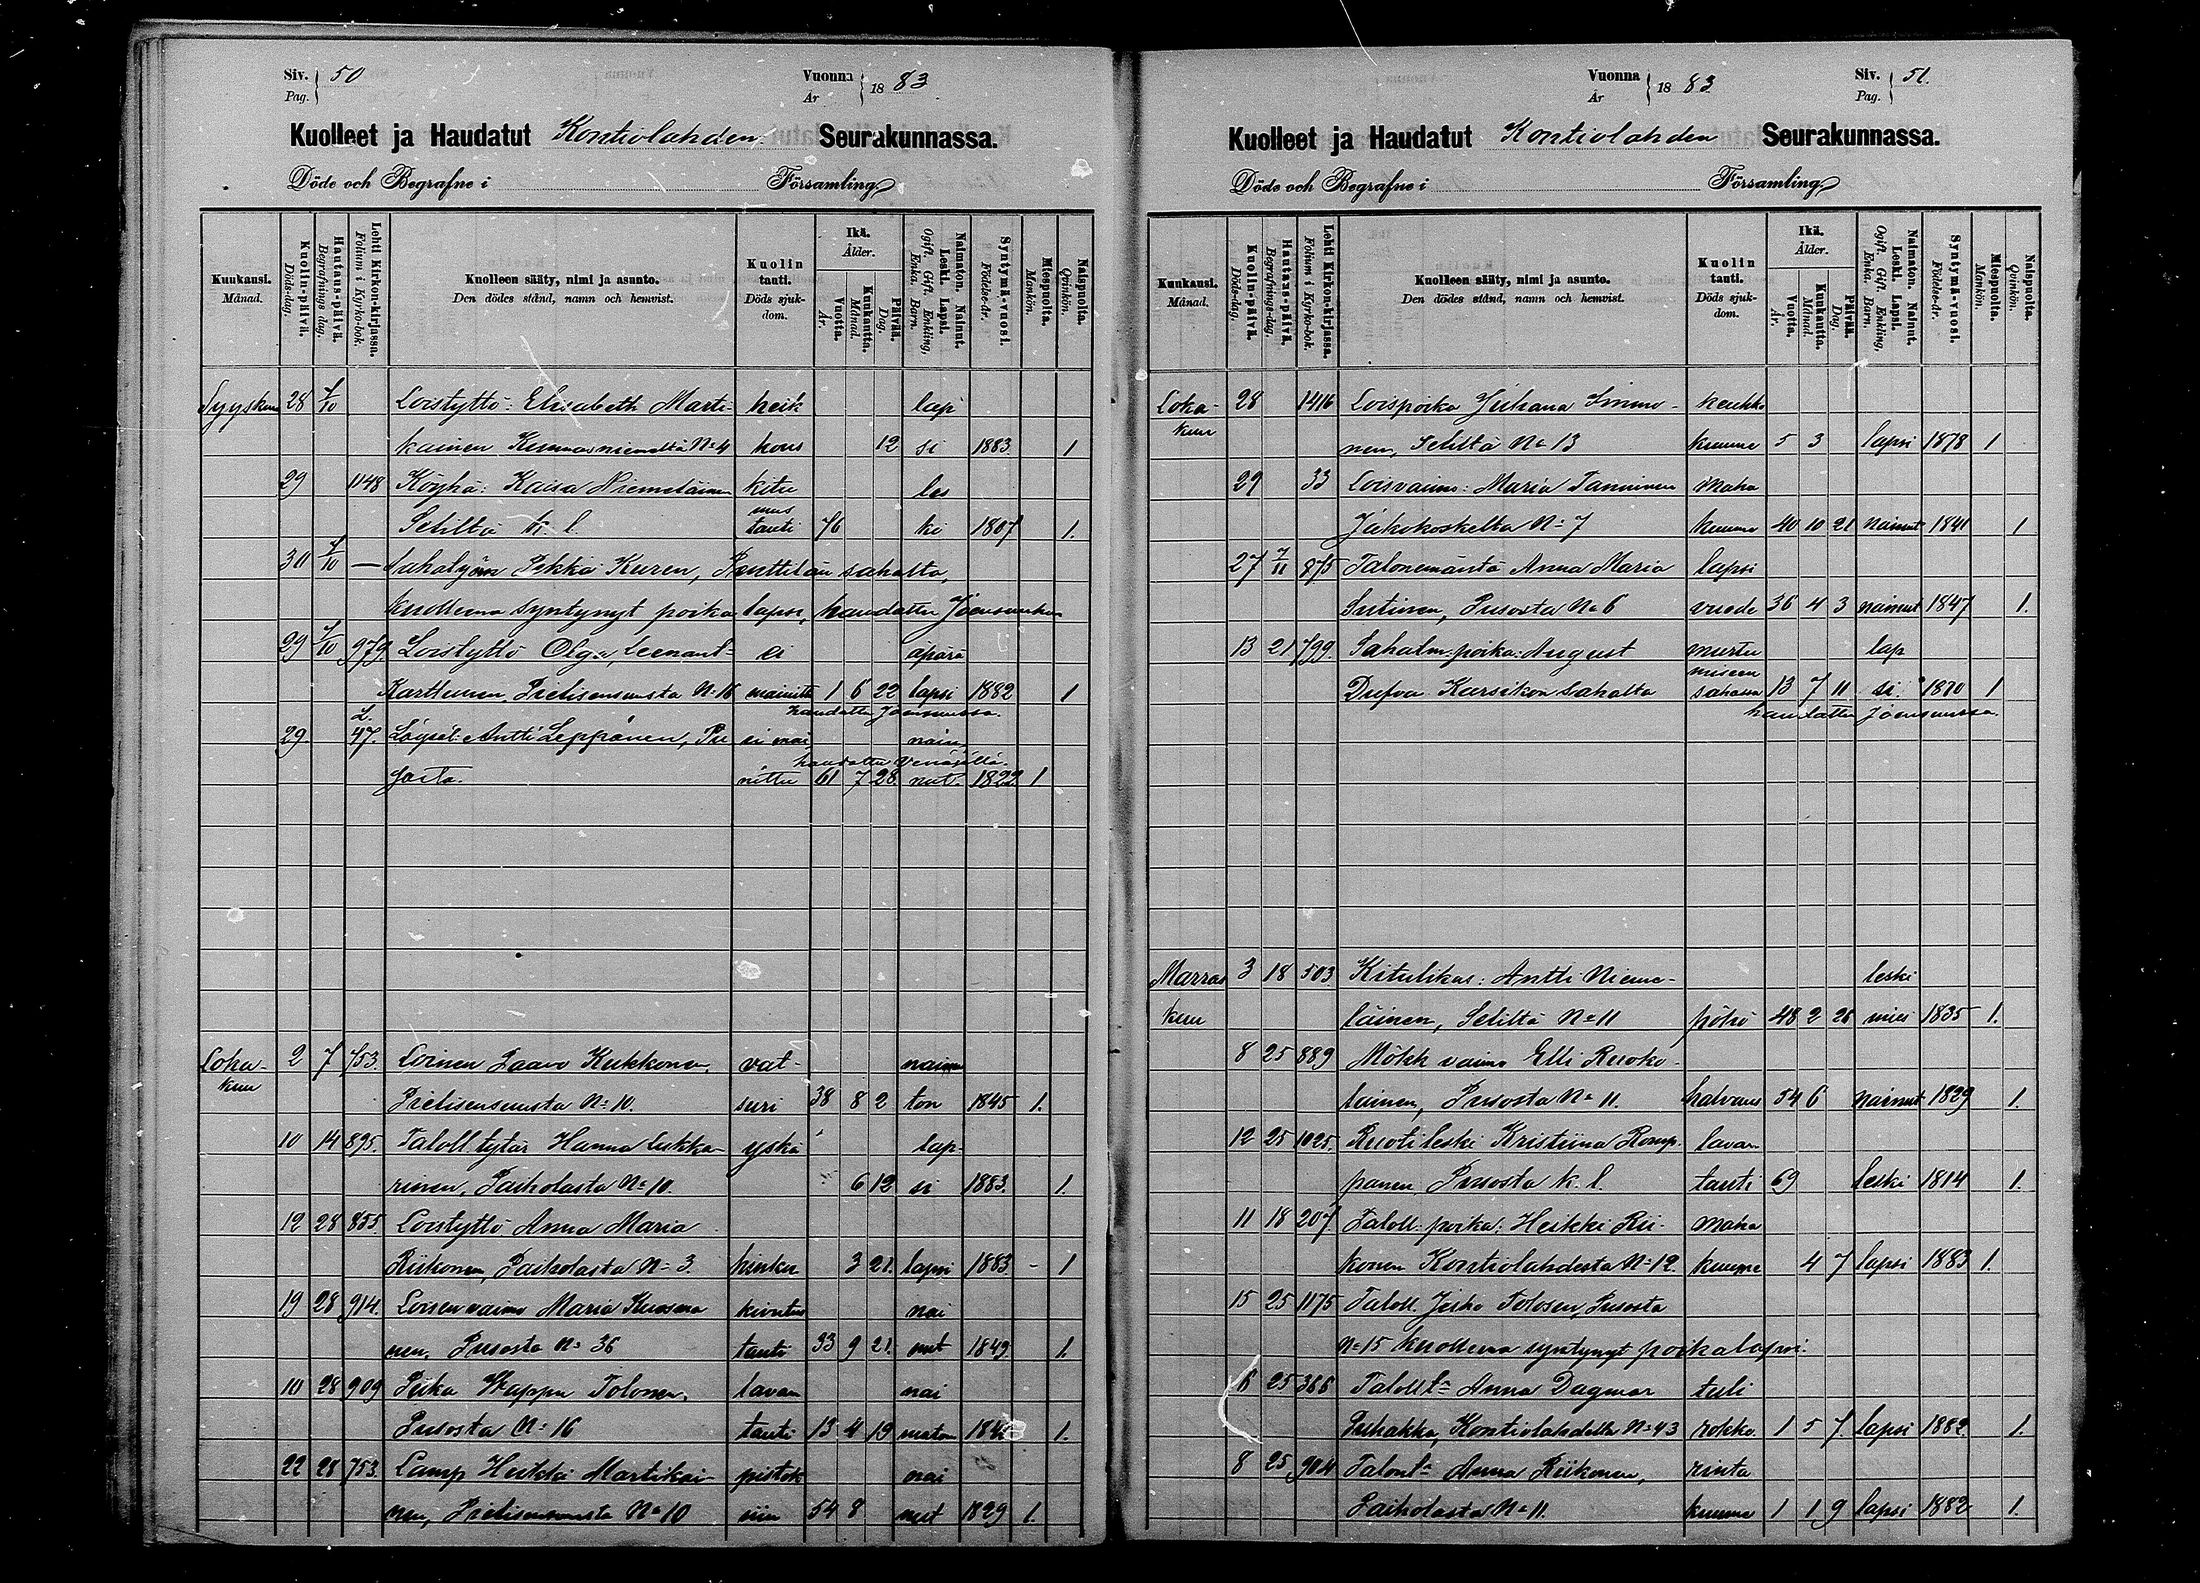 Siv. 50
Pag.
Vuonna 1883.
År
Kuolleet ja Haudatut Kontiolahden Seurakunnassa.
Döde och Begrafne i Församling
Kuukausi. Månad.
Kuolin-päivä. Döds-dag.
Hautaus-päivä. Begrafnings dag.
Lehti Kirkon-kirjassa. Folium i Kyrko-bok.
Kuolleen sääty, nimi ja asunto.
Den dödes stånd, namn och hemvist.
Kuolin tauti. Döds sjukdom.
Ikä. Ålder.
Vuotta. År.
Kuukautta. Månad.
Päivää. Dag.
Naimaton. Nainut. Leski. Lapsi. Ogift. Gift. Enkling, Enka. Barn.
Syntymä-vuosi. Födelse-år.
Miespuolta. Mankön.
Naispuolta. Qvinkön.
Syyskuu 28 7/10 Loistyttö: Elisabeth Marti- heik lap
kainen Kunnasniemeltä No 4 kous 12 si 1883 1
29 1148 Köyhä: Kaisa Niemeläinen kitu les
Seliltä k. l. mus tauti 76 ki 1807 1.
30 7/10 — Sahatyöm Pekka Kuren, Penttilän sahalta,
kuolleena syntynyt poika lapsi, haudattu Joensuuhun
29 7/10 979. Loistyttö Olga, Leenant- ei äpärä
Karttunen, Pielisensuusta No 16 mainittu 1 6 22 lapsi 1882 1
haudattu Joensuussa.
29 L. 47. Löysel: Antti Leppänen, Pu ei mai nain
haudattu Venäjällä.
sosta. nittu 61 7 28 nut. 1822 1
Loka- 2 7 753. Loinen Paavo Kukkonen, vat- naima
kuu Pielisensuusta No 10. suri 38 8 2 ton 1845 1.
10 14 895. Taloll. tytär Hanna Lukka- yskä lap-
rinen, Paiholasta No 10. 6 12 si 1883. 1.
12 28 855. Loistyttö Anna Maria
Riikonen, Paiholasta No 3. hinku 3 21. lapsi 1883 - 1
19 28 914. Loisen vaimo Maria Kunna kivutus nai
nen, Pusosta No 36 tauti 33 9 21. nut 1849 1.
10 28 909 Piika Kappu Tolonen, lavan nai
Pusosta No 16 tauti 13 4 19 maton 1.
22 28 753. Lamp Heikki Martikai- pistok nai
nen, Pielisensuusta No 10 siin 54 8 nut 1829 1.
Vuonna 1883
År
Siv. 51.
Pag.
Kuolleet ja Haudatut Kontiolahden Seurakunnassa.
Döde och Begrafne i Församling
Kuukausi. Månad.
Kuolin-päivä. Döds-dag.
Hautaus-päivä. Begrafnings-dag.
Lehti Kirkon-kirjassa. Folium i Kyrko-bok.
Kuolleen sääty, nimi ja asunto.
Den dödes stånd, namn och hemvist.
Kuolin tauti. Döds sjukdom.
Ikä. Ålder.
Vuotta. År.
Kuukautta. Månad.
Päivää. Dag.
Naimaton. Nainut. Leski. Lapsi. Ogift. Gift. Enkling, Enka. Barn.
Syntymä-vuosi. Födelse-år.
Miespuolta. Mankön.
Naispuolta. Qvinkön.
Loka- 28 1416 Loispoika Juhana Simmo- keuhko
kuu nen, Seliltä No 13 kuume 5 3 lapsi 1878 1
29 33 Loisvaimo: Maria Tanninen maha
Jakokoskelta No 7 kuume 40 10 21 nainut 1841 1
27 7/11 875 Talonemäntä Anna Maria lapsi
Sutinen, Pusosta No 6 vuode 36 4 3 nainut 1847 1.
13 21 799. Sahalm: poika: August murtu lap
Dufva Karsikon sahalta miseen sahassa 13 7 11 si. 1870 1
haudattu Joensuussa.
Marras 3 18 503 Kitulikas: Antti Nieme- leski
kuu läinen, Seliltä No 11 pöhö 48 2 26 mies 1835 1.
8 25 889 Mökk vaimo Elli Ruoko-
lainen, Pusosta No 11. halvaus 54 6 nainut 1829 1.
12 25 1025. Ruoti leski Kristiina Romp- lavan
panen Pusosta k. l. tauti 69 leski 1814 1.
11 18 207 Taloll: poika: Heikki Rii- maha
konen Kontiolahdesta No 12. kuume 4 7 lapsi 1883 1.
15 25 1175 Taloll. Juho Tolosen, Pusosta
No 15 kuolleena syntynyt poikalapsi.
6 25 366 Taloll ta Anna Dagmar tuli
Puhakka, Kontiolahdelta No 43 rokko. 1 5 7 lapsi 1882. 1.
8 25 904 Talon ta Anna Riikonen, rinta
Paiholasta No 11. kuume 1 1 9 lapsi 1882 1.